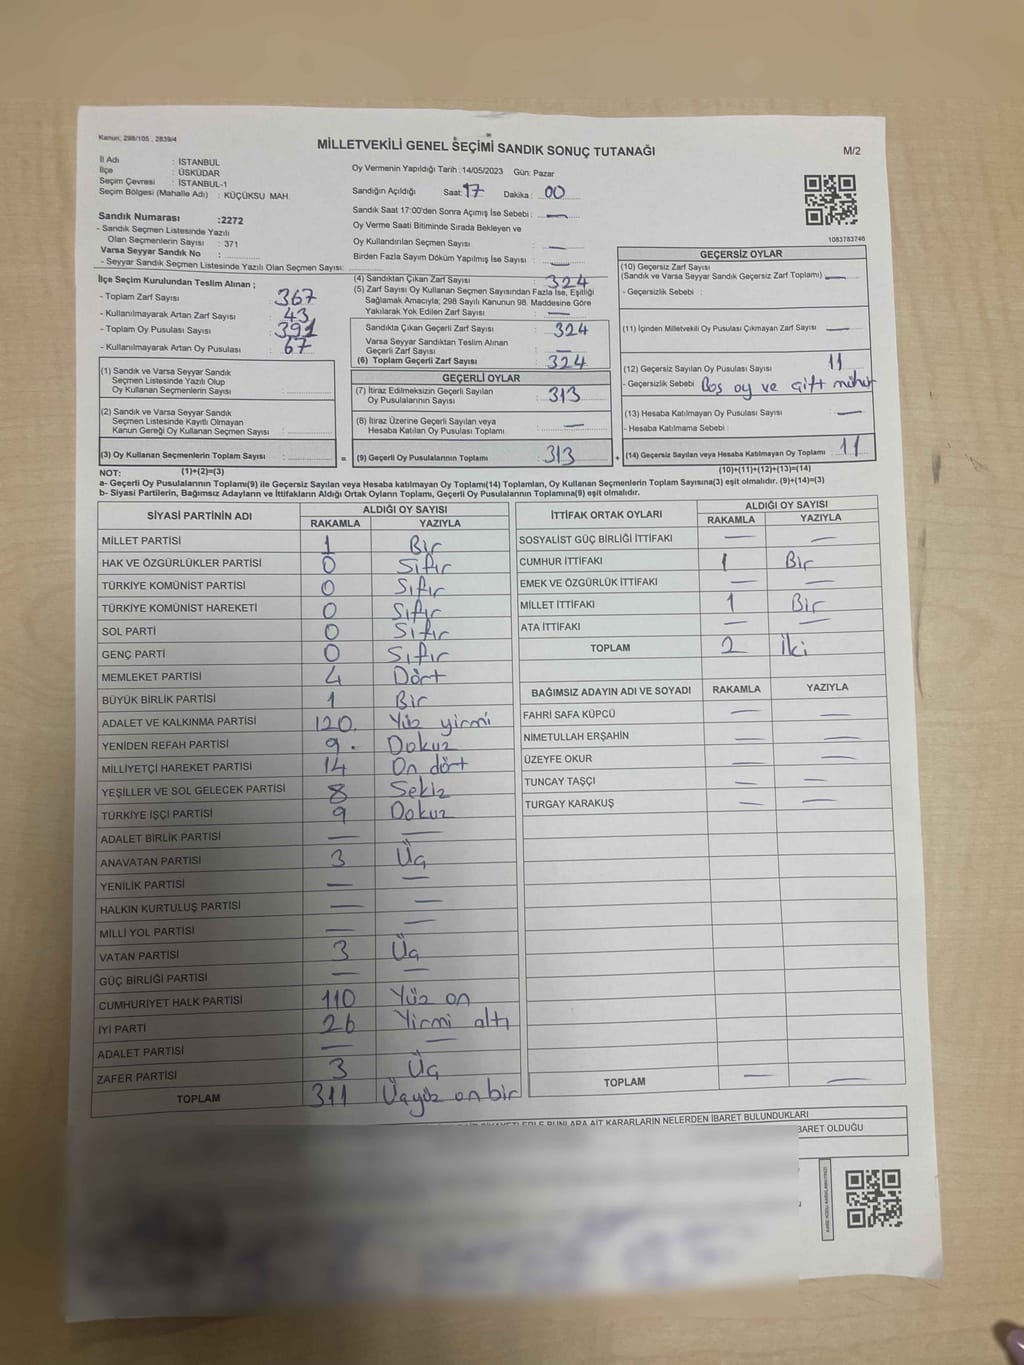 Kanun; 298/105 , 2839/4
MİLLETVEKİLİ GENEL SEÇİMİ SANDIK SONUÇ TUTANAĞI
M/2
İl Adı : İSTANBUL
İlçe : ÜSKÜDAR
Seçim Çevresi : İSTANBUL-1
Seçim Bölgesi (Mahalle Adı) : KÜÇÜKSU MAH.
Sandık Numarası :2272
- Sandık Seçmen Listesinde Yazılı
Olan Seçmenlerin Sayısı : 371
Varsa Seyyar Sandık No :
- Seyyar Sandık Seçmen Listesinde Yazılı Olan Seçmen Sayısı:
Oy Vermenin Yapıldığı Tarih :14/05/2023 Gün: Pazar
Sandığın Açıldığı Saat: 17 Dakika : 00
Sandık Saat 17:00'den Sonra Açımış İse Sebebi : —
Oy Verme Saati Bitiminde Sırada Bekleyen ve
Oy Kullandırılan Seçmen Sayısı : —
Birden Fazla Sayım Döküm Yapılmış İse Sayısı : —
1083783746
İlçe Seçim Kurulundan Teslim Alınan ;
- Toplam Zarf Sayısı : 367
- Kullanılmayarak Artan Zarf Sayısı : 43
- Toplam Oy Pusulası Sayısı : 391
- Kullanılmayarak Artan Oy Pusulası : 67
(1) Sandık ve Varsa Seyyar Sandık
Seçmen Listesinde Yazılı Olup
Oy Kullanan Seçmenlerin Sayısı :
(2) Sandık ve Varsa Seyyar Sandık
Seçmen Listesinde Kayıtlı Olmayan
Kanun Gereği Oy Kullanan Seçmen Sayısı :
(3) Oy Kullanan Seçmenlerin Toplam Sayısı :
(4) Sandıktan Çıkan Zarf Sayısı : 324
(5) Zarf Sayısı Oy Kullanan Seçmen Sayısından Fazla İse, Eşitliği
Sağlamak Amacıyla; 298 Sayılı Kanunun 98. Maddesine Göre
Yakılarak Yok Edilen Zarf Sayısı : —
Sandıkta Çıkan Geçerli Zarf Sayısı : 324
Varsa Seyyar Sandıktan Teslim Alınan
Geçerli Zarf Sayısı : —
(6) Toplam Geçerli Zarf Sayısı : 324
GEÇERLİ OYLAR
(7) İtiraz Edilmeksizin Geçerli Sayılan
Oy Pusulalarının Sayısı : 313
(8) İtiraz Üzerine Geçerli Sayılan veya
Hesaba Katılan Oy Pusulası Toplamı : —
= (9) Geçerli Oy Pusulalarının Toplamı : 313
GEÇERSİZ OYLAR
(10) Geçersiz Zarf Sayısı
(Sandık ve Varsa Seyyar Sandık Geçersiz Zarf Toplamı) : —
- Geçersizlik Sebebi :
(11) İçinden Milletvekili Oy Pusulası Çıkmayan Zarf Sayısı : —
(12) Geçersiz Sayılan Oy Pusulası Sayısı : 11
- Geçersizlik Sebebi : Boş oy ve çift mühür
(13) Hesaba Katılmayan Oy Pusulası Sayısı : —
- Hesaba Katılmama Sebebi :
+ (14) Geçersiz Sayılan veya Hesaba Katılmayan Oy Toplamı : 11
NOT: (1)+(2)=(3) (10)+(11)+(12)+(13)=(14)
a- Geçerli Oy Pusulalarının Toplamı(9) ile Geçersiz Sayılan veya Hesaba katılmayan Oy Toplamı(14) Toplamları, Oy Kullanan Seçmenlerin Toplam Sayısına(3) eşit olmalıdır. (9)+(14)=(3)
b- Siyasi Partilerin, Bağımsız Adayların ve İttifakların Aldığı Ortak Oyların Toplamı, Geçerli Oy Pusulalarının Toplamına(9) eşit olmalıdır.
SİYASİ PARTİNİN ADI ALDIĞI OY SAYISI
RAKAMLA YAZIYLA
MİLLET PARTİSİ 1 Bir
HAK VE ÖZGÜRLÜKLER PARTİSİ 0 Sıfır
TÜRKİYE KOMÜNİST PARTİSİ 0 Sıfır
TÜRKİYE KOMÜNİST HAREKETİ 0 Sıfır
SOL PARTİ 0 Sıfır
GENÇ PARTİ 0 Sıfır
MEMLEKET PARTİSİ 4 Dört
BÜYÜK BİRLİK PARTİSİ 1 Bir
ADALET VE KALKINMA PARTİSİ 120. Yüz yirmi
YENİDEN REFAH PARTİSİ 9. Dokuz
MİLLİYETÇİ HAREKET PARTİSİ 14 On dört
YEŞİLLER VE SOL GELECEK PARTİSİ 8 Sekiz
TÜRKİYE İŞÇİ PARTİSİ 9 Dokuz
ADALET BİRLİK PARTİSİ — —
ANAVATAN PARTİSİ 3 Üç
YENİLİK PARTİSİ — —
HALKIN KURTULUŞ PARTİSİ — —
MİLLİ YOL PARTİSİ — —
VATAN PARTİSİ 3 Üç
GÜÇ BİRLİĞİ PARTİSİ — —
CUMHURİYET HALK PARTİSİ 110 Yüz on
İYİ PARTİ 26 Yirmi altı
ADALET PARTİSİ — —
ZAFER PARTİSİ 3 Üç
TOPLAM 311 Üçyüz on bir
İTTİFAK ORTAK OYLARI ALDIĞI OY SAYISI
RAKAMLA YAZIYLA
SOSYALİST GÜÇ BİRLİĞİ İTTİFAKI — —
CUMHUR İTTİFAKI 1 Bir
EMEK VE ÖZGÜRLÜK İTTİFAKI — —
MİLLET İTTİFAKI 1 Bir
ATA İTTİFAKI — —
TOPLAM 2 İki
BAĞIMSIZ ADAYIN ADI VE SOYADI RAKAMLA YAZIYLA
FAHRİ SAFA KÜPCÜ — —
NİMETULLAH ERŞAHİN — —
ÜZEYFE OKUR — —
TUNCAY TAŞÇI — —
TURGAY KARAKUŞ — —
TOPLAM — —
BUNLARA AİT KARARLARIN NELERDEN İBARET BULUNDUKLARI
BARET OLDUĞU